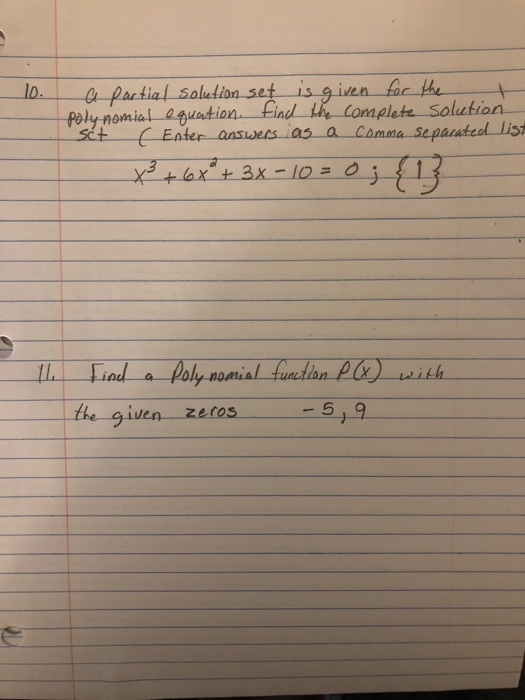 10. a partial solution set is given for the
polynomial equation. find the complete solution
set ( Enter answers as a comma separated list
x³ + 6x² + 3x - 10 = 0 ; {1}
11. Find a Polynomial function P(x) with
the given zeros -5, 9